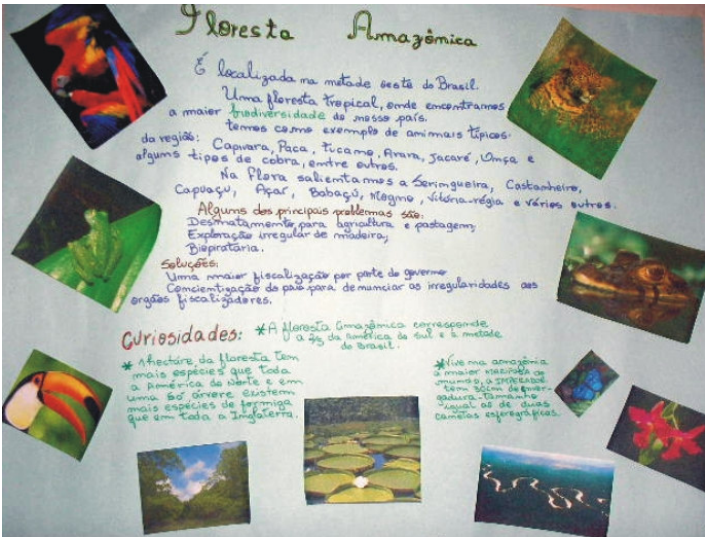 Floresta Amazônica
É localizada na metade oeste do Brasil.
Uma floresta tropical, onde encontramos
a maior biodiversidade do nosso país.
temos como exemplo de animais típicos
da região: Capivara, Paca, Tucano, Arara, Jacaré, Onça e
alguns tipos de cobra, entre outros.
Na flora salientamos a Seringueira, Castanheiro,
Cupuaçu, Açaí, Babaçú, Mogno, Vitória-régia e vários outros.
Alguns dos principais problemas são:
Desmatamento, para agricultura e pastagem;
Exploração irregular de madeira;
Biopirataria.
Soluções:
Uma maior fiscalização por parte do governo
Concientização do para denunciar as irregularidades aos
orgãos fiscalizadores.
Curiosidades: *A floresta amazônica corresponde
a 2/5 da América do Sul e a metade
do Brasil.
* 1 hectare da floresta tem
mais espécies que toda
a América do Norte e em
uma só árvore existem
mais espécies de formiga
que em toda a Inglaterra.
*Vive na amazônia
a maior MARIPOSA do
mundo, a IMPERADOR,
tem 30cm de enver-
gadura-tamanho
igual ao de duas
canetas esferográficas.